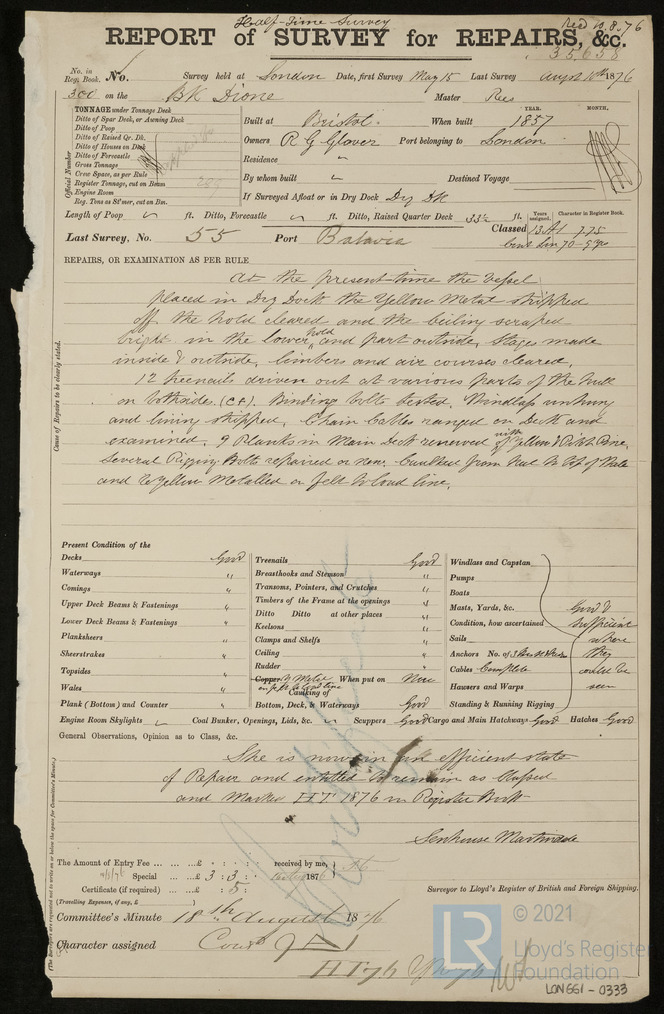 Half-Time Survey
Rec 12.8.76
REPORT of SURVEY for REPAIRS, &c.
35658
No. in Reg. Book. No. Survey held at London Date, first Survey May 15 Last Survey Augst 10th 1876
300 on the Bk Dione Master Rees
TONNAGE under Tonnage Deck
Ditto of Spar Deck, or Awning Deck
Ditto of Poop
Ditto of Raised Qr. Dk.
Ditto of Houses on Deck
Ditto of Forecastle
Gross Tonnage
Crew Space, as per Rule
Register Tonnage, cut on Beam
Engine Room
Reg. Tons as St'mer, cut on Bm.
Official Number
YEAR. MONTH.
Built at Bristol When built 1857
Owners R G Glover Port belonging to London
Residence "
By whom built " Destined Voyage
If Surveyed Afloat or in Dry Dock Dry Dk
Length of Poop ft. Ditto, Forecastle ft. Ditto, Raised Quarter Deck 33½ ft.
Years assigned. Character in Register Book.
Classed 13 A1 7.75
Last Survey, No. 55 Port Batavia
REPAIRS, OR EXAMINATION AS PER RULE
Cause of Repairs to be clearly stated.
At the present time the vessel
placed in Dry Dock the Yellow Metal stripped
off the hold cleared and the ceiling scraped
bright in the lower hold and part outside, Stages made
inside & outside, limbers and air courses cleared,
12 treenails driven out at various parts of the hull
on bothsides. (C.F.). Binding bolts tested. Windlass unhung
and lining stripped. Chain Cables ranged on Deck and
examined. 9 Planks in Main Deck renewed with Yellow & Pitch Pine.
Several Rigging Bolts repaired or new. Caulked from Keel to top of Wale
and Yellow Metalled on felt to load line.
Present Condition of the
Decks Good
Waterways "
Comings "
Upper Deck Beams & Fastenings "
Lower Deck Beams & Fastenings "
Planksheers "
Sheerstrakes "
Topsides "
Wales "
Plank (Bottom) and Counter "
Treenails Good
Breasthooks and Stemson "
Transoms, Pointers, and Crutches "
Timbers of the Frame at the openings "
Ditto Ditto at other places "
Keelsons "
Clamps and Shelfs "
Ceiling "
Rudder "
Copper Y Metal When put on New
Caulking of
Bottom, Deck, Waterways Good
Windlass and Capstan
Pumps
Boats
Masts, Yards, &c. Good &
Condition, how ascertained sufficient
Sails where
Anchors No. of they
Cables Complete could be
Hawsers and Warps seen
Standing & Running Rigging
Engine Room Skylights Coal Bunker, Openings, Lids, &c. Scuppers Good Cargo and Main Hatchways Good Hatches Good
General Observations, Opinion as to Class, &c.
She is now in an efficient state
of Repair and entitled to remain as Classed
and Marked H.T. 1876 in Register Book
Senhouse Martindale
The Amount of Entry Fee £ : : received by me,
Special £ 3 : 3 : 1876
Certificate (if required) : 5 :
(Travelling Expenses, if any, £ )
Surveyor to Lloyd's Register of British and Foreign Shipping.
Committee's Minute 18th August 1876
Character assigned
(The Surveyors are requested not to write on or below the space for Committee's Minute.)
LR
© 2021
Lloyd's Register
Foundation
LON661-0333